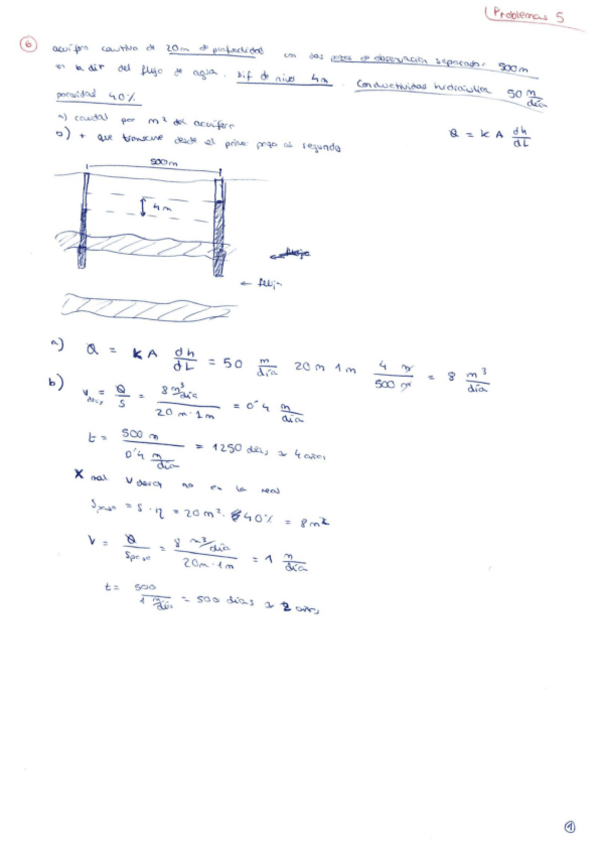 Problemas 5
⑥ acuífero cautivo de 20m de profundidad con dos pozos de observación separados 500m
en la dir del flujo de agua. Dif de nivel 4m. Conductividad hidraúlica 50 m/día
porosidad 40%
a) caudal por m² del acuífero
b) t que transcurre desde el primer pozo al segundo
Q = K A dh/dL
500m
4m
flujo
← flujo
a) Q = K A dh/dL = 50 m/día 20m 1m 4 m/500 m = 8 m³/día
b) v darcy = Q/S = 8 m³/día / 20m·1m = 0'4 m/día
t = 500 m / 0'4 m/día = 1250 días ≈ 4 años
X mal v darcy no es la real
S poros = S · η = 20m² · 40% = 8m²
V = Q/S poro = 8 m³/día / 20m·1m = 1 m/día
t = 500 / 1 m/día = 500 días ≈ 2 años
①